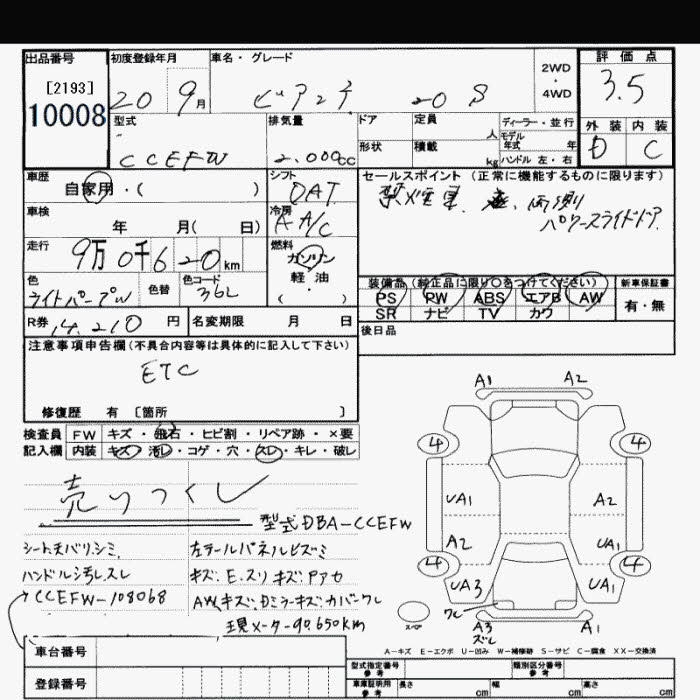 出品番号 初度登録年月 車名・グレード 2WD・4WD 評価点
[2193]
10008 20 9月 ビアンテ 20S 3.5
型式 排気量 ドア 定員 人 ディーラー・並行 外装 内装
CCEFW 2.000cc 形状 積載 kg モデル年式 年 D C
ハンドル 左・右
車歴 自家用・( ) シフト DAT セールスポイント (正常に機能するものに限ります)
車検 年 月( 日) 冷房 A A/C 禁煙車、両側
パワースライドドア
走行 9万0千620km 燃料 ガソリン 軽油 ・( )
色 ライトパープル 色替 色コード 36L 装備品(純正品に限り○をつけてください) 新車保証書
PS PW ABS エアB AW 有・無
SR ナビ TV カワ
R券 14.210円 名変期限 月 日 後日品
注意事項申告欄(不具合内容等は具体的に記入して下さい)
ETC
修復歴 有 [箇所 ]
検査員記入欄 FW キズ・飛石・ヒビ割・リペア跡・×要
内装 キズ・汚レ・コゲ・穴・スレ・キレ・破レ
売りつくし
型式DBA-CCEFW
シート天バリシミ 左テールパネルヒズミ
ハンドル汚レスレ キズ.E.スリキズ.Pアセ
CCEFW-108068 AWキズ.Dミラーキズ.カバーワレ
現メーター90.650km
A1 A2
4 4
UA1 A2
A2 UA1
4 4
UA3 UA1
ワレ
スペア A3 ズレ A1
A-キズ E-エクボ U-凹み W-補修跡 S-サビ C-腐食 XX-交換済
車台番号 型式指定番号 参考 類別区分番号 参考
登録番号 車庫証明用 参考 長さ cm 幅 cm 高さ cm